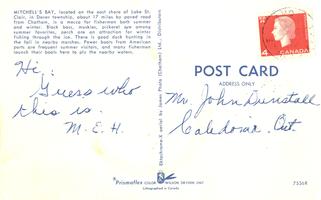 MITCHELL'S BAY, located on the east shore of Lake St.
Clair, in Dover township, about 17 miles by paved road
from Chatham, is a mecca for fishermen both summer
and winter. Black bass, muskie, pickerel are among
summer favorites, perch are an attraction for winter
fishing through the ice. There is good duck hunting in
the fall in nearby marshes. Power boats from American
ports are frequent summer visitors, and many fishermen
launch their boats here to ply the nearby waters.
Hi,
Guess who
this is.
M.E.H.
POST CARD
ADDRESS ONLY
Mr. John Dunstall
Caledonia. Ont.
4 CANADA
Ektachrome-X series by James Phala (Chatham) Ltd., Distributors
Prismaflex COLOR WILSON DRYDEN ONT
Lithographed in Canada
7556R